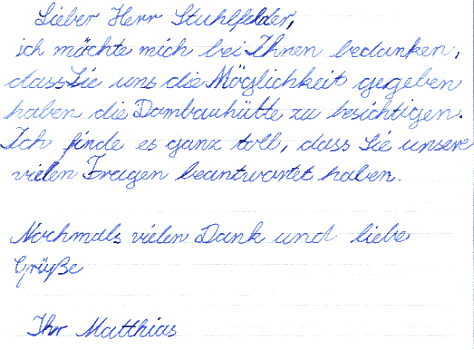 Lieber Herr Stuhlfelder,
ich möchte mich bei Ihnen bedanken,
dass Sie uns die Möglichkeit gegeben
haben die Dombauhütte zu besichtigen.
Ich finde es ganz toll, dass Sie unsere
vielen Fragen beantwortet haben.
Nochmals vielen Dank und liebe
Grüße
Ihr Matthias